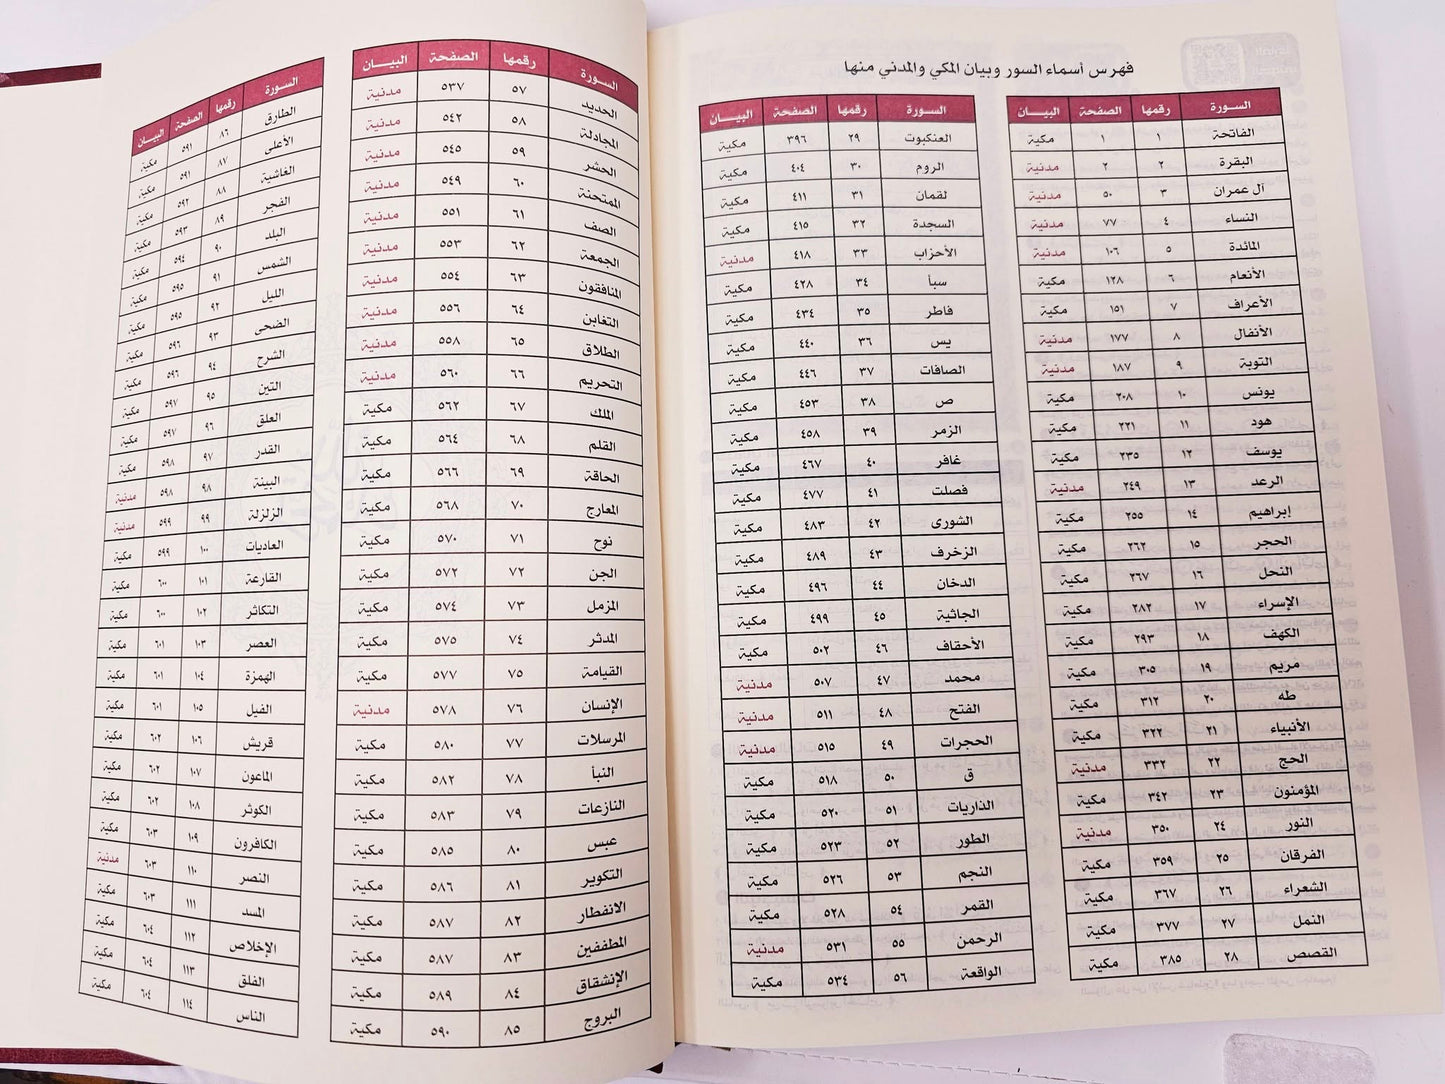 فهرس أسماء السور وبيان المكي والمدني منها
السورة رقمها الصفحة البيان
الفاتحة ١ ١ مكية
البقرة ٢ ٢ مدنية
آل عمران ٣ ٥٠ مدنية
النساء ٤ ٧٧ مدنية
المائدة ٥ ١٠٦ مدنية
الأنعام ٦ ١٢٨ مكية
الأعراف ٧ ١٥١ مكية
الأنفال ٨ ١٧٧ مدنية
التوبة ٩ ١٨٧ مدنية
يونس ١٠ ٢٠٨ مكية
هود ١١ ٢٢١ مكية
يوسف ١٢ ٢٣٥ مكية
الرعد ١٣ ٢٤٩ مدنية
إبراهيم ١٤ ٢٥٥ مكية
الحجر ١٥ ٢٦٢ مكية
النحل ١٦ ٢٦٧ مكية
الإسراء ١٧ ٢٨٢ مكية
الكهف ١٨ ٢٩٣ مكية
مريم ١٩ ٣٠٥ مكية
طه ٢٠ ٣١٢ مكية
الأنبياء ٢١ ٣٢٢ مكية
الحج ٢٢ ٣٣٢ مدنية
المؤمنون ٢٣ ٣٤٢ مكية
النور ٢٤ ٣٥٠ مدنية
الفرقان ٢٥ ٣٥٩ مكية
الشعراء ٢٦ ٣٦٧ مكية
النمل ٢٧ ٣٧٧ مكية
القصص ٢٨ ٣٨٥ مكية
السورة رقمها الصفحة البيان
العنكبوت ٢٩ ٣٩٦ مكية
الروم ٣٠ ٤٠٤ مكية
لقمان ٣١ ٤١١ مكية
السجدة ٣٢ ٤١٥ مكية
الأحزاب ٣٣ ٤١٨ مدنية
سبأ ٣٤ ٤٢٨ مكية
فاطر ٣٥ ٤٣٤ مكية
يس ٣٦ ٤٤٠ مكية
الصافات ٣٧ ٤٤٦ مكية
ص ٣٨ ٤٥٣ مكية
الزمر ٣٩ ٤٥٨ مكية
غافر ٤٠ ٤٦٧ مكية
فصلت ٤١ ٤٧٧ مكية
الشورى ٤٢ ٤٨٣ مكية
الزخرف ٤٣ ٤٨٩ مكية
الدخان ٤٤ ٤٩٦ مكية
الجاثية ٤٥ ٤٩٩ مكية
الأحقاف ٤٦ ٥٠٢ مكية
محمد ٤٧ ٥٠٧ مدنية
الفتح ٤٨ ٥١١ مدنية
الحجرات ٤٩ ٥١٥ مدنية
ق ٥٠ ٥١٨ مكية
الذاريات ٥١ ٥٢٠ مكية
الطور ٥٢ ٥٢٣ مكية
النجم ٥٣ ٥٢٦ مكية
القمر ٥٤ ٥٢٨ مكية
الرحمن ٥٥ ٥٣١ مدنية
الواقعة ٥٦ ٥٣٤ مكية
السورة رقمها الصفحة البيان
الحديد ٥٧ ٥٣٧ مدنية
المجادلة ٥٨ ٥٤٢ مدنية
الحشر ٥٩ ٥٤٥ مدنية
الممتحنة ٦٠ ٥٤٩ مدنية
الصف ٦١ ٥٥١ مدنية
الجمعة ٦٢ ٥٥٣ مدنية
المنافقون ٦٣ ٥٥٤ مدنية
التغابن ٦٤ ٥٥٦ مدنية
الطلاق ٦٥ ٥٥٨ مدنية
التحريم ٦٦ ٥٦٠ مدنية
الملك ٦٧ ٥٦٢ مكية
القلم ٦٨ ٥٦٤ مكية
الحاقة ٦٩ ٥٦٦ مكية
المعارج ٧٠ ٥٦٨ مكية
نوح ٧١ ٥٧٠ مكية
الجن ٧٢ ٥٧٢ مكية
المزمل ٧٣ ٥٧٤ مكية
المدثر ٧٤ ٥٧٥ مكية
القيامة ٧٥ ٥٧٧ مكية
الإنسان ٧٦ ٥٧٨ مدنية
المرسلات ٧٧ ٥٨٠ مكية
النبأ ٧٨ ٥٨٢ مكية
النازعات ٧٩ ٥٨٣ مكية
عبس ٨٠ ٥٨٥ مكية
التكوير ٨١ ٥٨٦ مكية
الانفطار ٨٢ ٥٨٧ مكية
المطففين ٨٣ ٥٨٧ مكية
الإنشقاق ٨٤ ٥٨٩ مكية
البروج ٨٥ ٥٩٠ مكية
السورة رقمها الصفحة البيان
الطارق ٨٦ ٥٩١ مكية
الأعلى ٨٧ ٥٩١ مكية
الغاشية ٨٨ ٥٩٢ مكية
الفجر ٨٩ ٥٩٣ مكية
البلد ٩٠ ٥٩٤ مكية
الشمس ٩١ ٥٩٥ مكية
الليل ٩٢ ٥٩٥ مكية
الضحى ٩٣ ٥٩٦ مكية
الشرح ٩٤ ٥٩٦ مكية
التين ٩٥ ٥٩٧ مكية
العلق ٩٦ ٥٩٧ مكية
القدر ٩٧ ٥٩٨ مكية
البينة ٩٨ ٥٩٨ مدنية
الزلزلة ٩٩ ٥٩٩ مدنية
العاديات ١٠٠ ٥٩٩ مكية
القارعة ١٠١ ٦٠٠ مكية
التكاثر ١٠٢ ٦٠٠ مكية
العصر ١٠٣ ٦٠١ مكية
الهمزة ١٠٤ ٦٠١ مكية
الفيل ١٠٥ ٦٠١ مكية
قريش ١٠٦ ٦٠٢ مكية
الماعون ١٠٧ ٦٠٢ مكية
الكوثر ١٠٨ ٦٠٢ مكية
الكافرون ١٠٩ ٦٠٣ مكية
النصر ١١٠ ٦٠٣ مدنية
المسد ١١١ ٦٠٣ مكية
الإخلاص ١١٢ ٦٠٤ مكية
الفلق ١١٣ ٦٠٤ مكية
الناس ١١٤ ٦٠٤ مكية